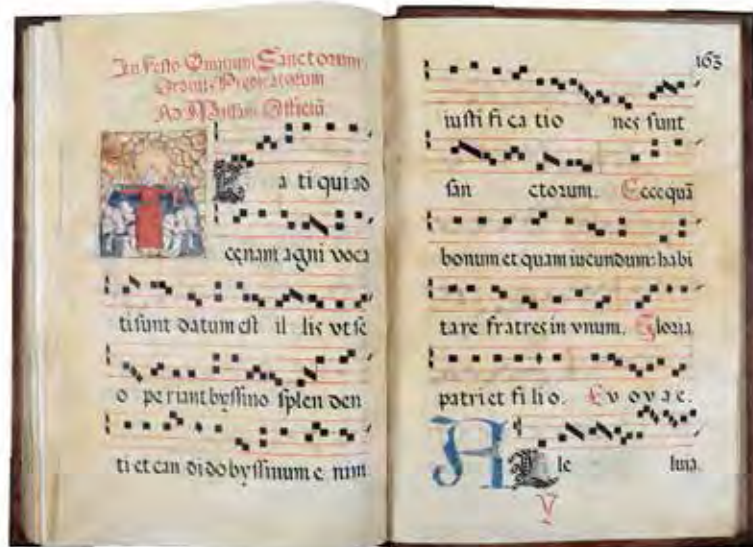 In Festo Omnium Sanctorum
Ordinis Predicatorum
Ad Missam Officiũ
a ti qui ad
cęnam agni voca
ti sunt datum est il lis vt se
o periant byssino splen den
ti et can di do byssinum e nim
163
iusti fi ca tio nes sunt
san ctorum. Ecce quã
bonum et quam iucundum: habi
tare fratres in vnum. Gloria
patri et fi li o. Ev o v a e.
A le luia.
V